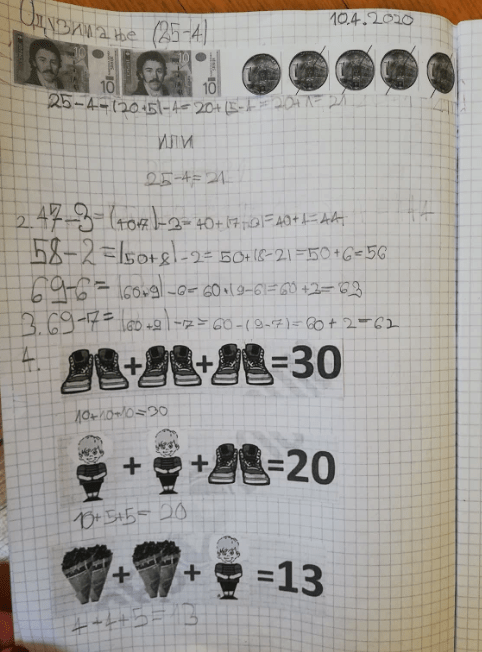 Одузимање (25-4) 10.4.2020
10 10 10 10
25-4=(20+5)-4=20+(5-4=20+1=21
ИЛИ
25-4=21
2. 47-3=(40+7)-3=40+(7-3)=40+4=44
58-2=(50+8)-2=50+(8-2)=50+6=56
69-6=(60+9)-6=60+(9-6)=60+3=63
3. 69-7=(60+9)-7=60-(9-7)=60+2=62
4. + + =30
10+10+10=30
+ + =20
10+5+5=20
+ + =13
4+4+5=13